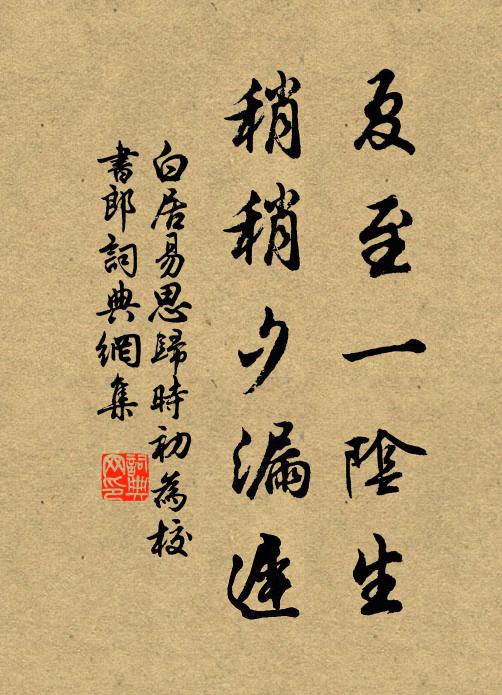 夏至一陰生
稍稍夕漏遲
白居易思歸時初為校
書郎詞典網集
詞典
网印